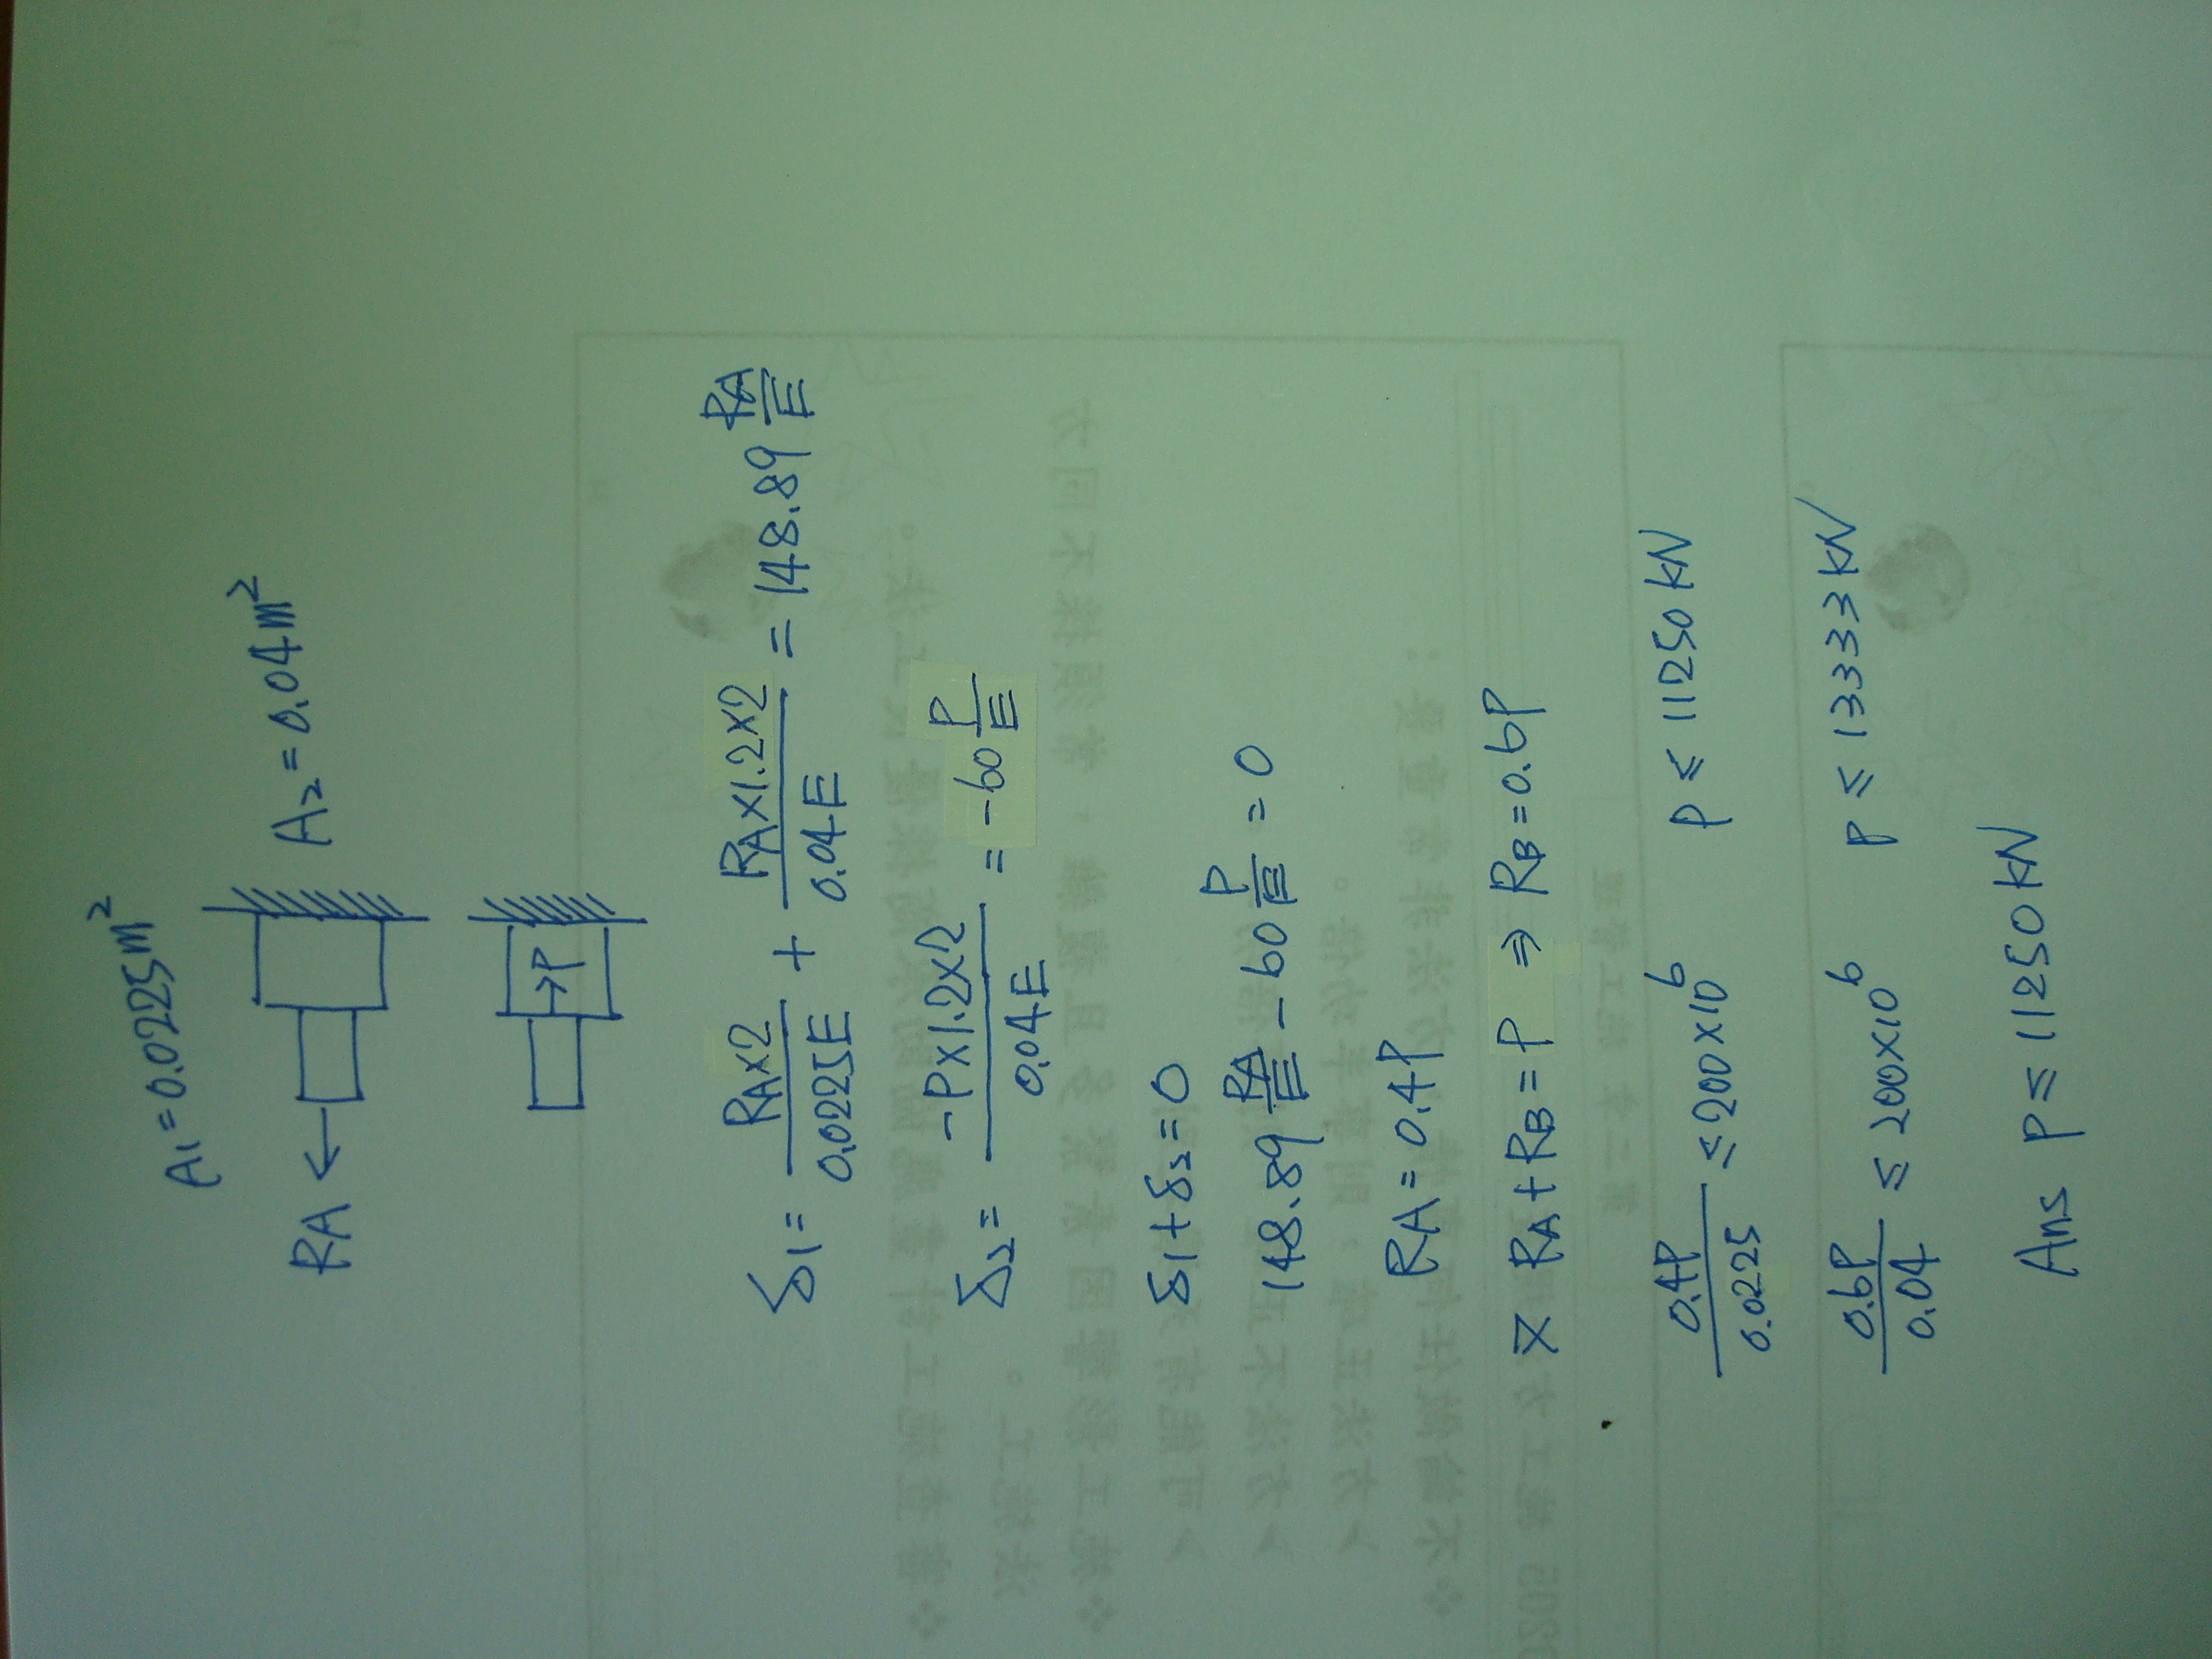 A₁ = 0.0225m² A₂ = 0.04m²
RA ←
→P
δ₁ = RA×2 / 0.0225E + RA×1.2×2 / 0.04E = 148.89 RA/E
δ₂ = -P×1.2×2 / 0.04E = -60 P/E
δ₁ + δ₂ = 0
148.89 RA/E - 60 P/E = 0
RA = 0.4P
又 RA + RB = P ⇒ RB = 0.6P
0.4P / 0.0225 ≤ 200×10⁶ P ≤ 11250 kN
0.6P / 0.04 ≤ 200×10⁶ P ≤ 13333 kN
Ans P ≤ 11250 kN